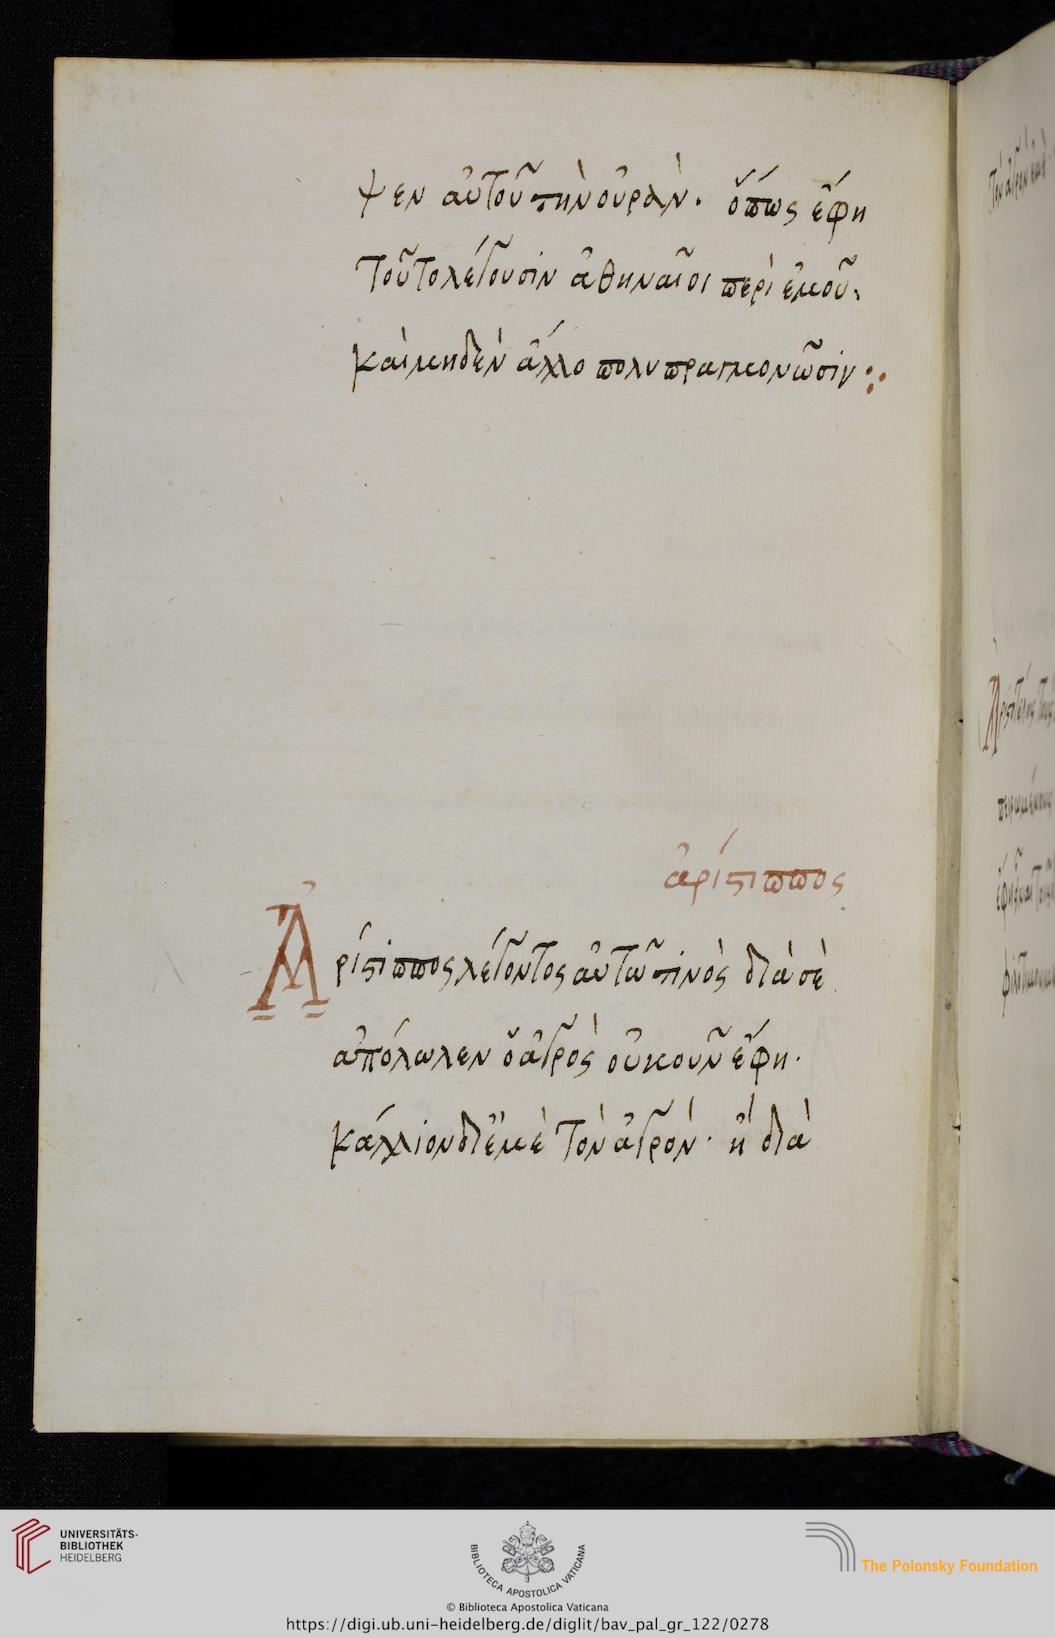 ψεν αὐτοῦ τὴν οὐρὰν. ὅπως ἔφη
τοῦτο λέγουσιν ἀθηναῖοι περὶ ἐμοῦ,
καὶ μηδὲν ἄλλο πολυπραγμονῶσιν:·
ἀρίστιππος
Ἀρίστιππος λέγοντος αὐτῶ τινὸς διὰ σὲ
ἀπόλωλεν ὁ ἀγρὸς οὐκοῦν ἔφη.
κάλλιον δι ἐμὲ τὸν ἀγρὸν. ἢ διὰ
UNIVERSITÄTS-
BIBLIOTHEK
HEIDELBERG
BIBLIOTECA APOSTOLICA VATICANA
The Polonsky Foundation
© Biblioteca Apostolica Vaticana
https://digi.ub.uni-heidelberg.de/diglit/bav_pal_gr_122/0278